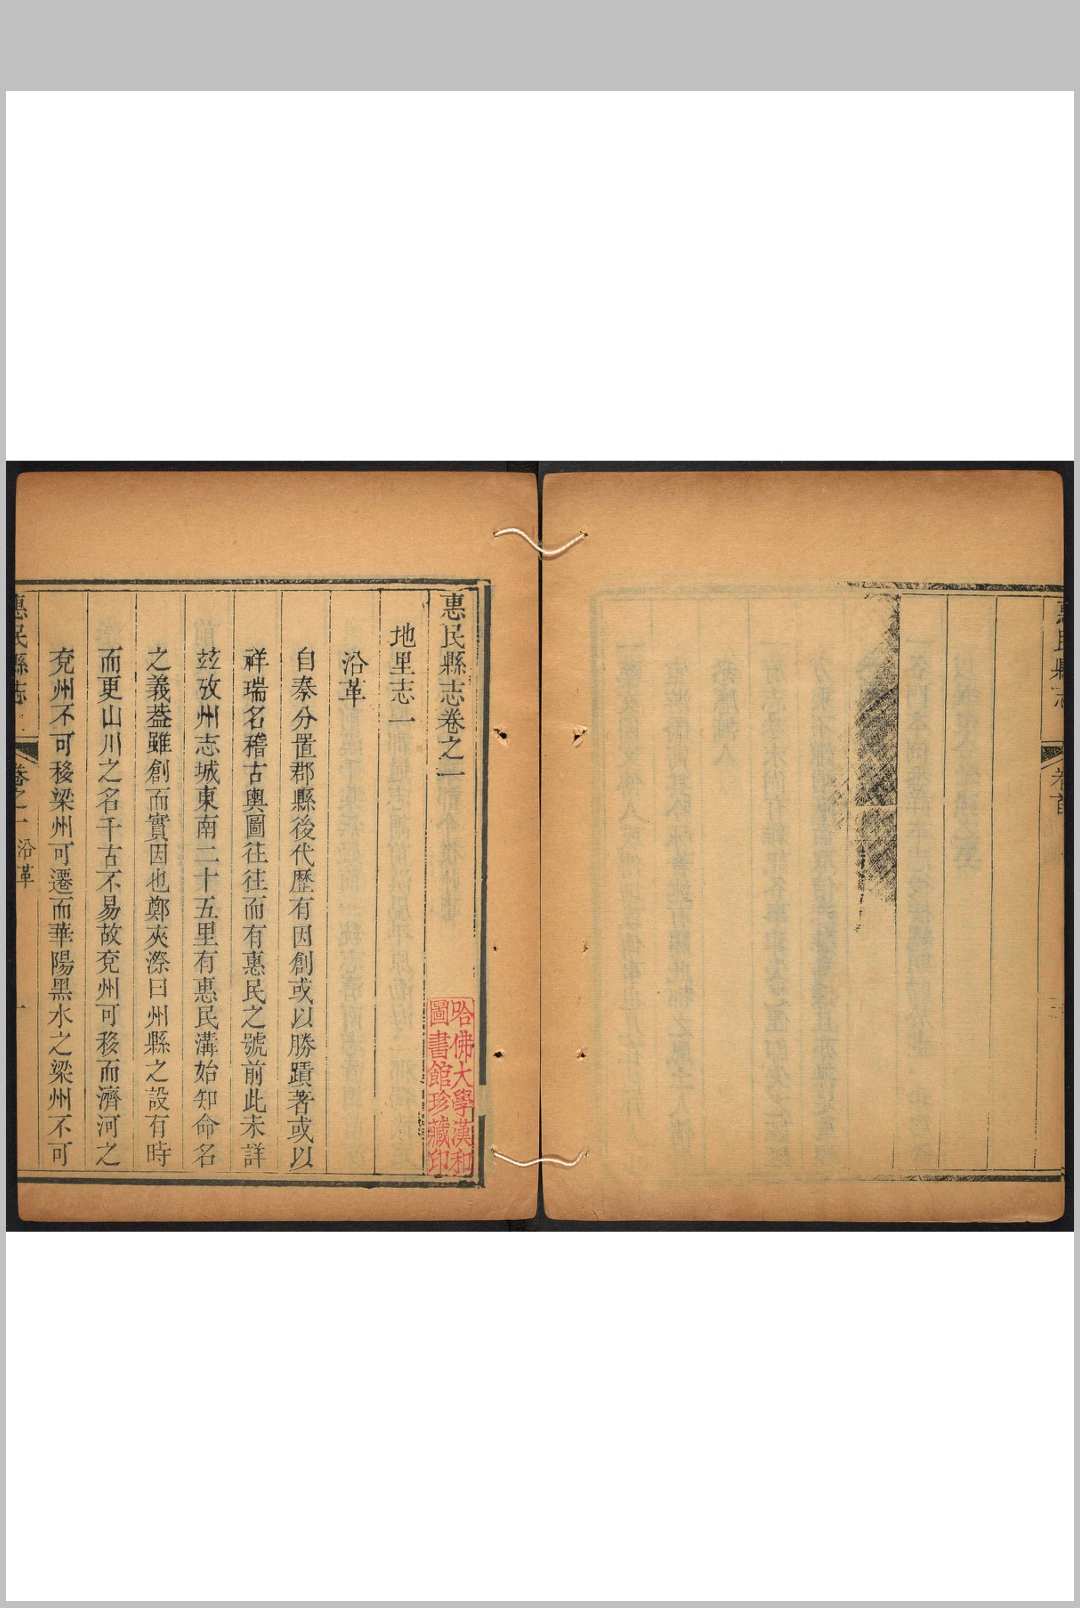 惠民縣志
卷首
惠民縣志卷之一
地里志一
沿革
自秦分置郡縣後代歷有因創或以勝蹟著或以
祥瑞名稽古輿圖徃徃而有惠民之號前此未詳
玆攷州志城東南二十五里有惠民溝始知命名
之義葢雖創而實因也鄭夾漈曰州縣之設有時
而更山川之名千古不易故兗州可移而濟河之
兗州不可移梁州可遷而華陽黑水之梁州不可
惠民縣志
卷之一
沿革
一
哈佛大學漢和
圖書館珍藏印